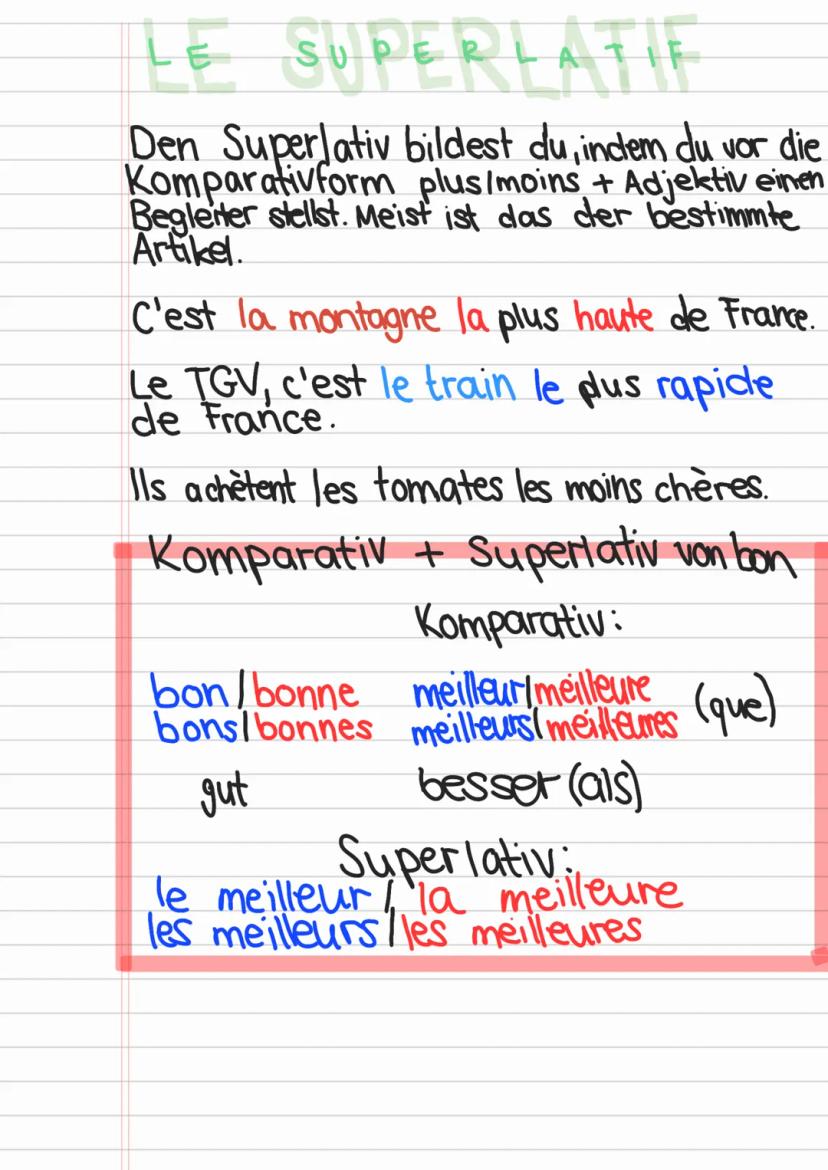 LE SUPERLATIF
Den Superlativ bildest du, indem du vor die
Komparativform plus/moins + Adjektiv einen
Begleiter stellst. Meist ist das der bestimmte
Artikel.
C'est la montagne la plus haute de France.
Le TGV, c'est le train le plus rapide
de France.
Ils achètent les tomates les moins chères.
Komparativ + Superlativ von bon
Komparativ:
bon/bonne meilleur/meilleure (que)
bons/bonnes meilleurs/meilleures
gut besser (als)
Superlativ:
le meilleur/ la meilleure
les meilleurs/les meilleures